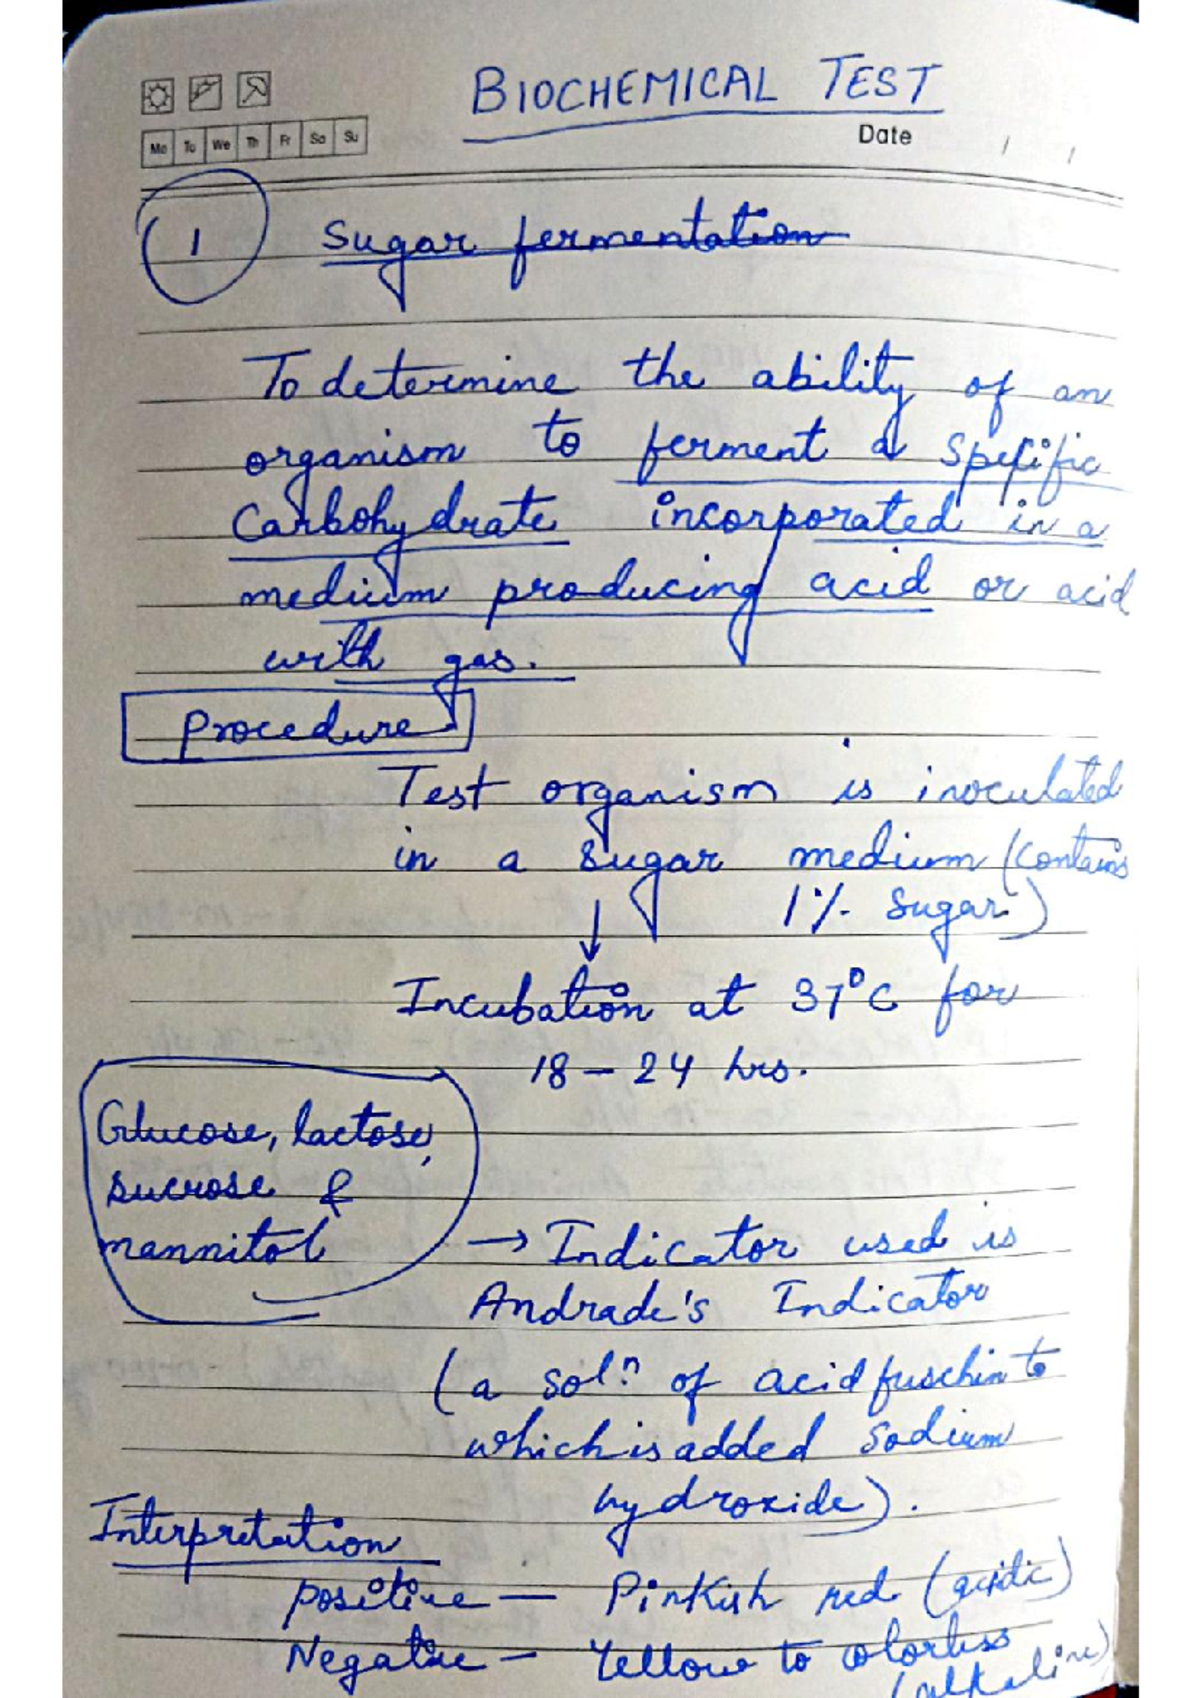 BIOCHEMICAL TEST
Mo Tu We Th Fr Sa Su
Date / /
1 Sugar fermentation
To determine the ability of an
organism to ferment a specific
Carbohydrate incorporated in a
medium producing acid or acid
with gas.
Procedure
Test organism is inoculated
in a sugar medium (contains
1% sugar)
↓
Incubation at 37°C for
18 - 24 hrs.
Glucose, lactose,
sucrose &
mannitol
→ Indicator used is
Andrade's Indicator
(a solⁿ. of acid fuschin to
which is added sodium
hydroxide).
Interpretation
positive — Pinkish red (acidic)
Negative — Yellow to colorless
(alkaline)